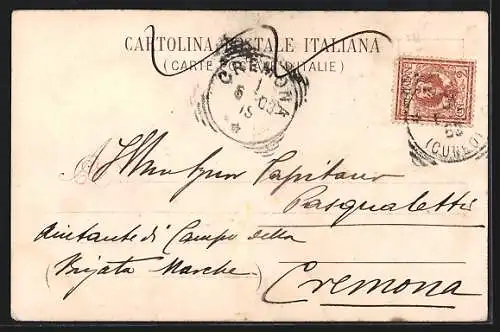 CARTOLINA POSTALE ITALIANA
(CARTE D'ITALIE)
CREMONA
6 1 03
1S
(CUNEO)
All'Ill
Signor Capitano
Pasqualetti
aiutante di Campo della
(Brigata Marche)
Cremona